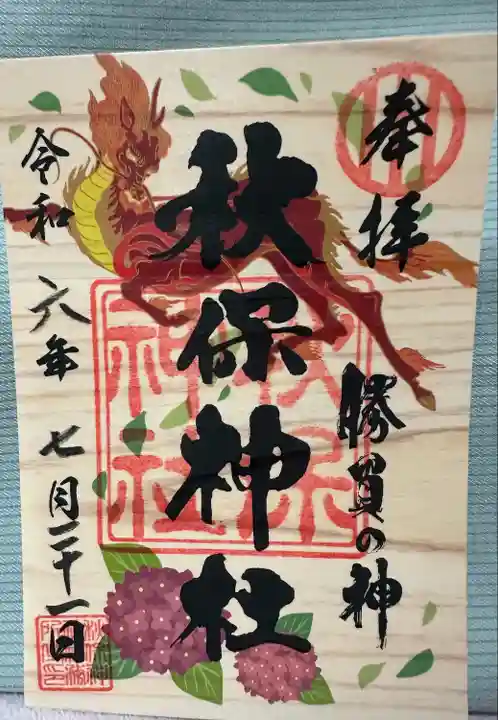 奉拝
勝負の神
秋保神社
秋保
神社
令和六年 七月二十一日